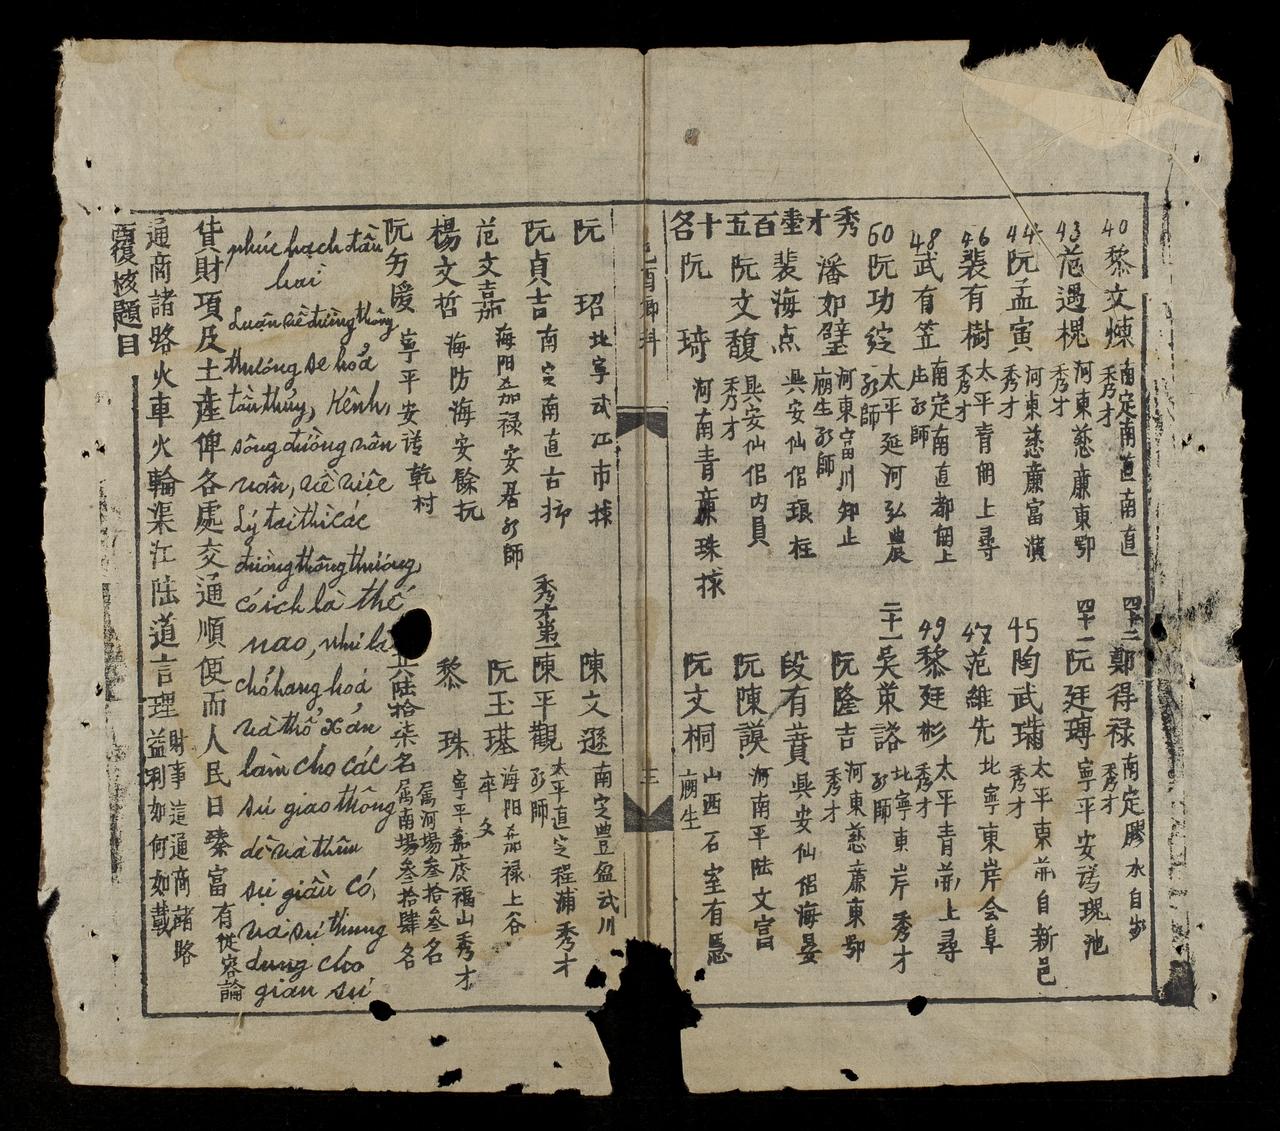 40 黎文煉 南定南直南直 秀才
四十二 鄭得禄 南定膠水自步 秀才
43 范遇槐 河東慈廉東鄂 秀才
四十一 阮廷瑼 寧平安謨瑰池
44 阮孟寅 河東慈廉富演 秀才
45 陶武璛 太平東関自新邑 秀才
46 裴有樹 太平青関上尋 秀才
47 范維先 北寧東岸会阜
48 武有笠 南定南直都関上
49 黎廷彬 太平青関上尋 秀才
60 阮功綻 太平延河弘農
二十一 吳萊詻 北寧東岸秀才
潘如璧 河東富川知止
阮隆吉 河東慈廉東鄂 秀才
裴海点 興安仙侣琅柱
段有蕡 興安仙侣海晏
阮文馥 興安仙侣内員 秀才
阮陳謨 河南平陸文富
阮琦 河南青廉珠捄
阮文桐 山西石室有慝 廟生
秀才壹百五十名
己酉鄉科
三
阮玿 北寧武江市捄
陳文遜 南定豊盈武川
阮貞吉 南定南直古
秀才第一陳平觀 太平直定程浦秀才
范文嘉 海阳嘉禄安
阮玉璂 海阳嘉禄上谷
楊文哲 海防海安餘抗
黎珠 寧平嘉慶福山秀才
阮 寧平安謨乾村
共陸拾柒名 属河場叁拾叁名 属南場叁拾肆名
phúc hạch đầu
bài
Luận về đường thông
thương xe hoả
tàu thủy, Kênh,
sông đường vân
vân, về việc
Lý tài thì các
đường thông thương,
có ích là thế
nao, như là
chở hang hoá
và thổ sản
làm cho các
sự giao thông
dễ và thêm
sự giầu có,
và sự thung
dung cho
gian sự
貨財項及土産俾各處交通順便而人民日臻富有從容論
通商諸路火車火輪渠江陸道言理財事這通商諸路益利如何如載
覆核題目